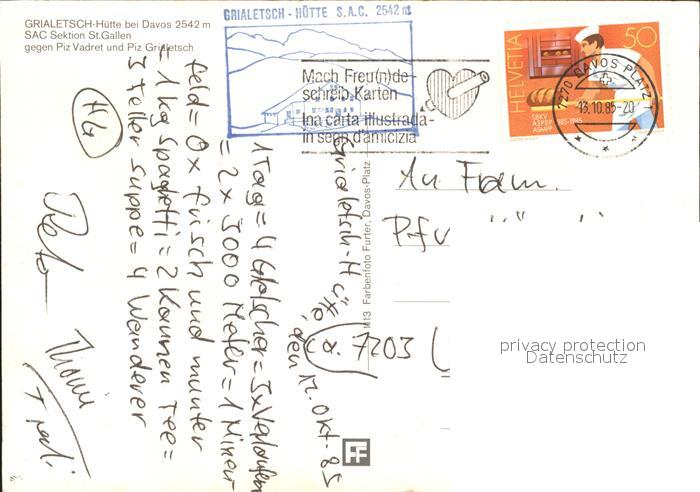 GRIALETSCH-Hütte bei Davos 2542 m
SAC Sektion St.Gallen
gegen Piz Vadret und Piz Grialetsch
GRIALETSCH - HÜTTE S.A.C. 2542 m
Mach Freu(n)de-
schreib Karten
Ina carta illustrada-
in segn d'amicizia
HELVETIA
50
SBKV
ASPBP 1885-1985
ASMPP
7270 DAVOS PLATZ 1
13.10.85-20
Grialetsch-Hütte, den 12. Okt. 85
1 Tag = 4 Gletscher = 3x Verlaufen
= 2 x 3000 Meter = 1 Minen
feld = 0 x frisch und munter
= 1 kg Spagetti = 2 Kannen Tee =
3 Teller Suppe = 4 Wanderer
HG
Reto
An Fram.
Pfv
7203
M13 Farbenfoto Furter, Davos-Platz
FF
privacy protection
Datenschutz